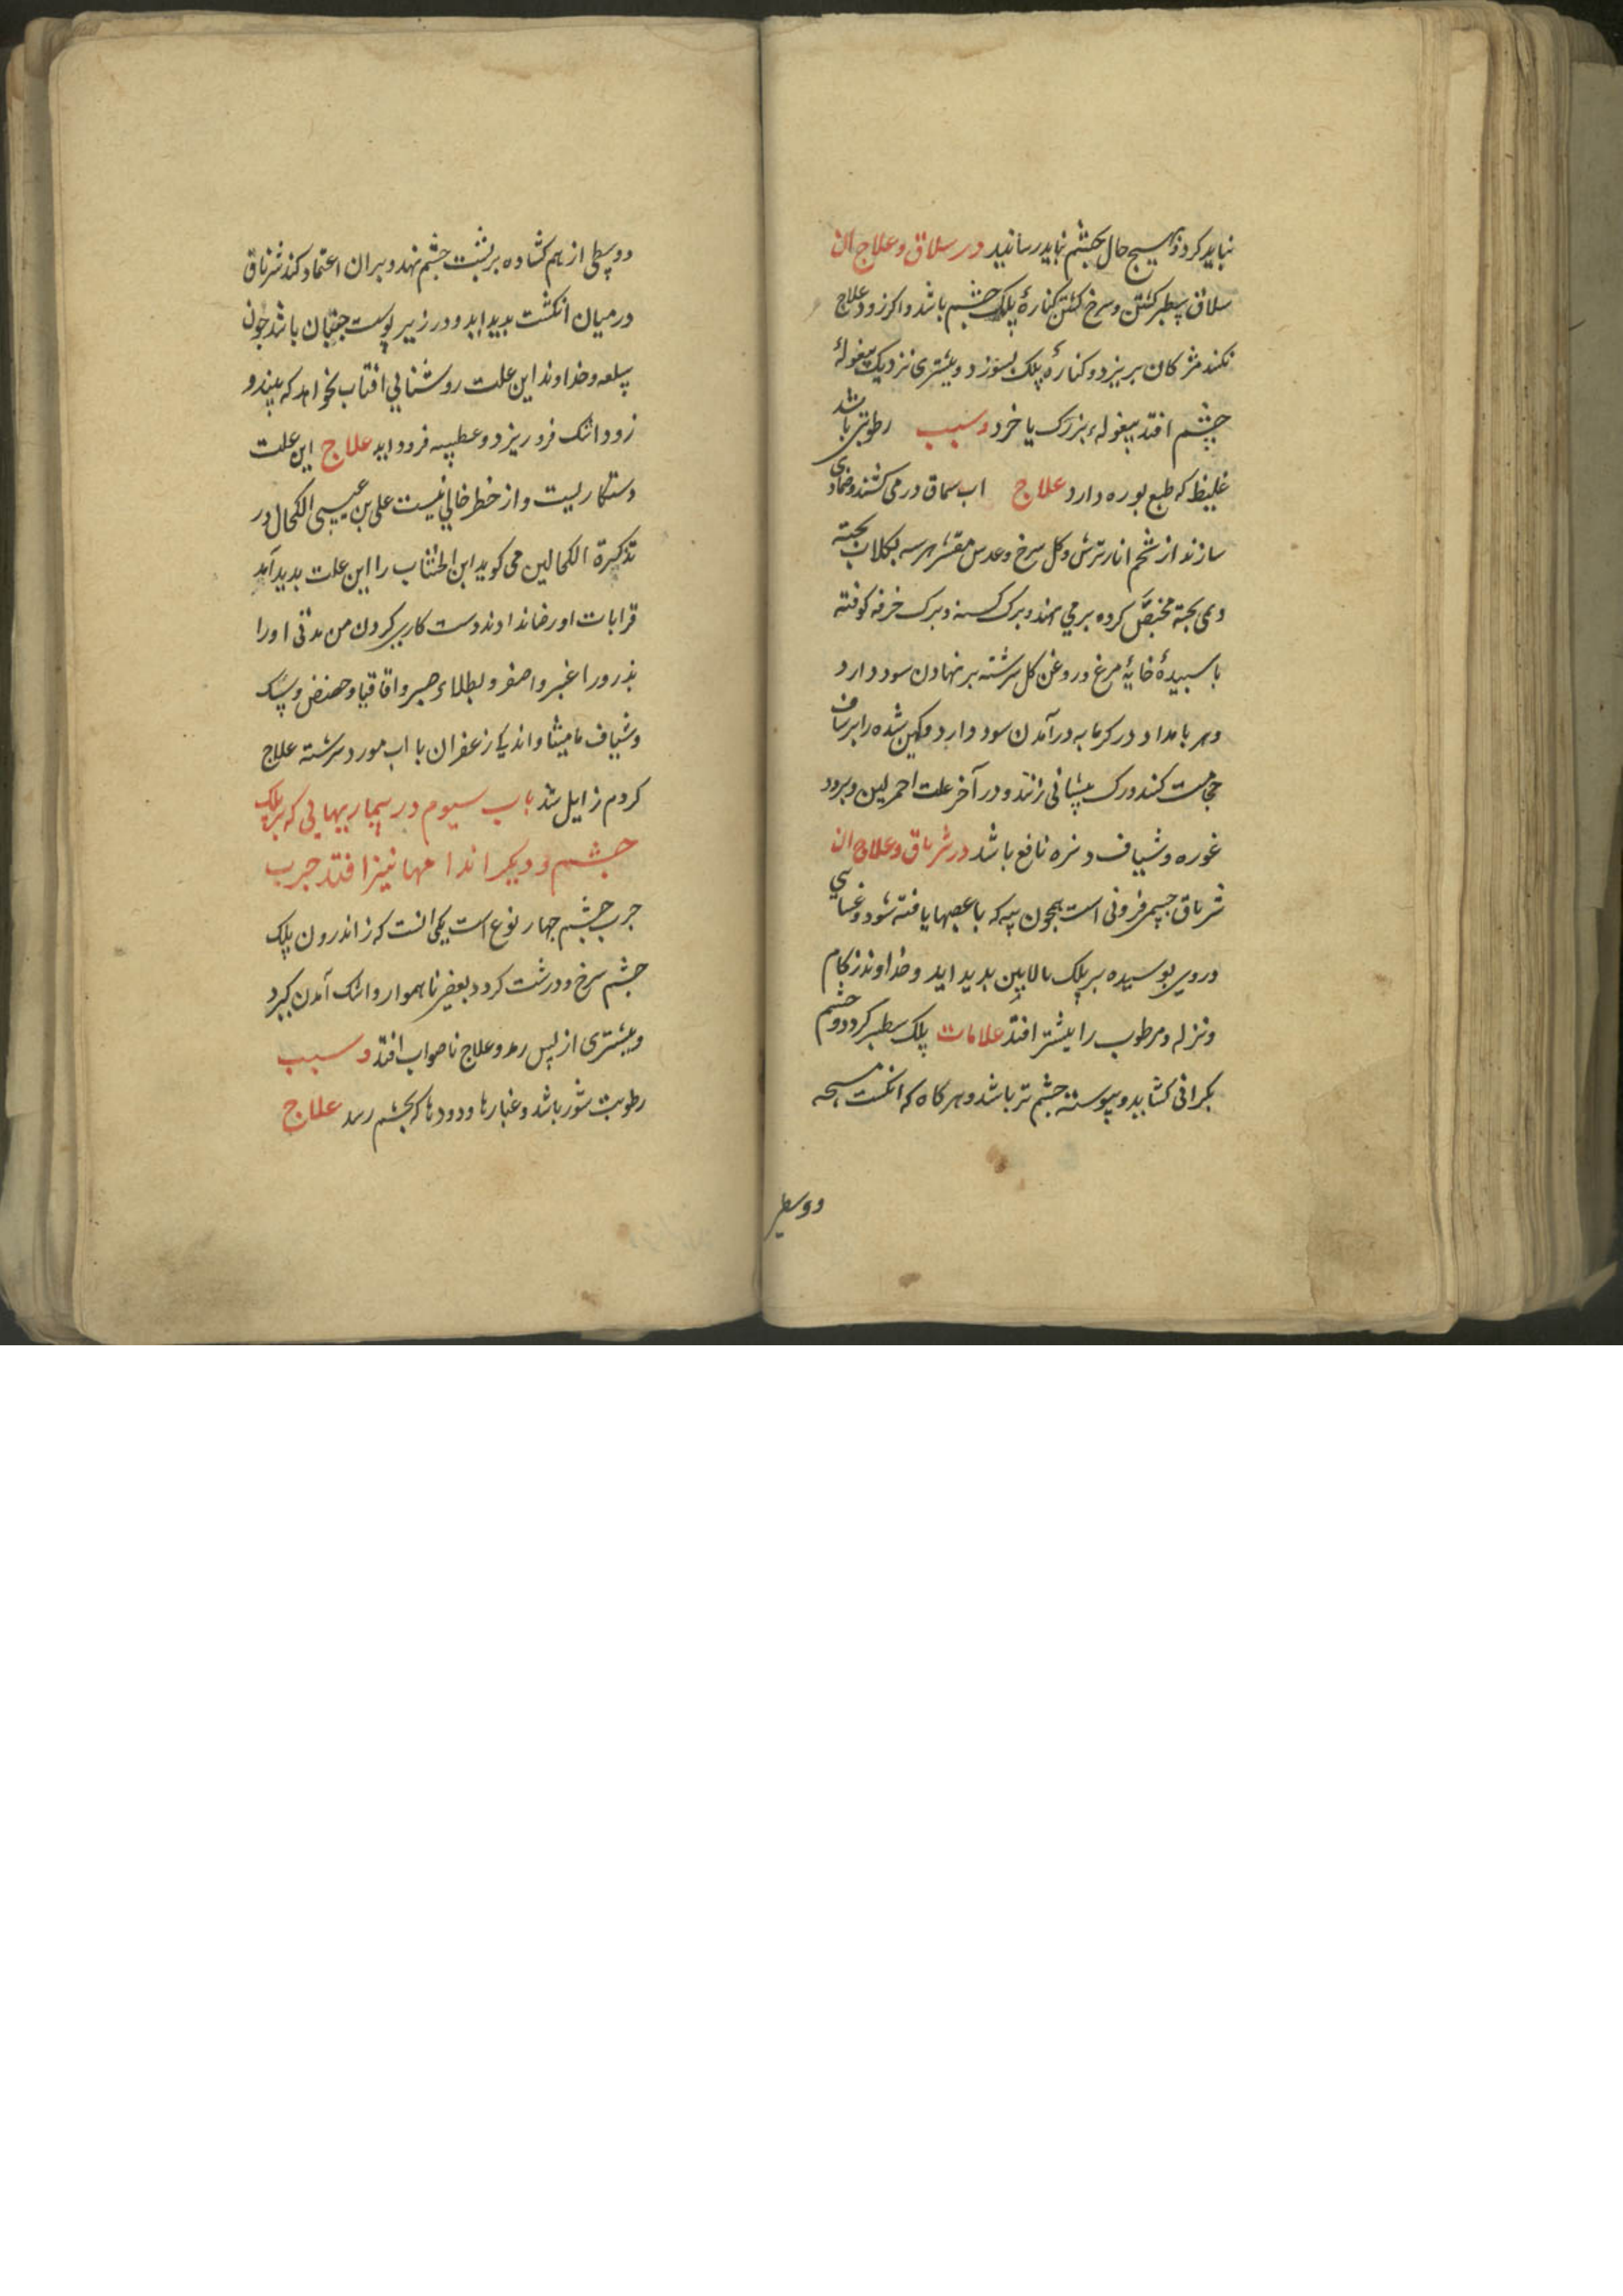 نباید کرد و بهیچ حال بچشم نباید رسانید در سلاق و علاج ان
سلاق سطبر کشتن و سرخ کشتن کنارهٔ پلک چشم باشد و اکر زود علاج
نکند مژکان بریزد و کنارهٔ پلک بسوزد و بیشتری نزدیک بیغولهٔ
چشم افتد بیغولهء بزرک یا خرد و سبب رطوبتی باشد
غلیظ که طبع بوره دارد علاج اب سماق در می کشند و ضمادی
سازند از شحم انار ترش و کل سرخ و عدس مقشر هرسه بکلاب پخته
و می پخته کرده بر می نهند و برک و برک خرفه کوفته
با سپیدهٔ خایهٔ مرغ و روغن کل سرشته بر نهادن سود دارد
و هر بامداد در کرمابه درآمدن سود دارد و کهن شده را بر ساق
حجامت کنند و رک پیشانی زنند و در آخر علت احمر لین و برود
غوره و شیاف نافع باشد در شرناق و علاج ان
شرناق جسمی فزونی است همچون پیه که با عصبها بافته شود و غشایی
در وی پوسیده بر پلک بالایین بدید اید و خداوند زکام
و نزله و مرطوب را بیشتر افتد علامات پلک سطبر کردد و چشم
بکرانی کشاید و پیوسته چشم تر باشد و هر کاه که انکشت مسبحه
و وسطی
و وسطی از هم کشاده بر پشت چشم نهد و بران اعتماد کند شرناق
در میان انکشت بدید اید و در زیر پوست جنبان باشد چون
سلعه و خداوند این علت روشنایی افتاب نخواهد که بیند و
زود اشک فرو ریزد و عطسه فرود اید علاج این علت
دستکاریست و از خطر خالی نیست علی بن عیسی الکحال در
تذکرة الکحالین می کوید ابن را این علت بدید آمد
قرابات او رضا ندادند دست کاری کردن من مدتی او را
بذرور اغبر و اصفر و بطلاء صبر و اقاقیا و حضض و سک
و شیاف مامیثا و اندکی زعفران با اب مورد سرشته علاج
کردم زایل شد باب سیوم در بیماریهایی که بر پلک
چشم و دیکر اندامها نیز افتد جرب
جرب چشم چهار نوع است یکی انست که ز اندرون پلک
چشم سرخ و درشت کردد بعضی ناهموار و اشک آمدن کیرد
و بیشتری از پس رمد و علاج ناصواب افتد و سبب
رطوبت شور باشد و غبارها و دودها که بچشم رسد علاج